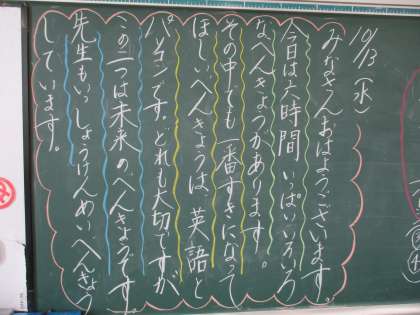 10/13(水)
みなさんおはようございます。
今日は六時間いっぱいいろいろ
なべんきょうがあります。
その中でも一番すきになって
ほしいべんきょうは、英語と
パソコンです。どれも大切ですが
この二つは未来のべんきょうです。
先生もいっしょうけんめいべんきょう
しています。